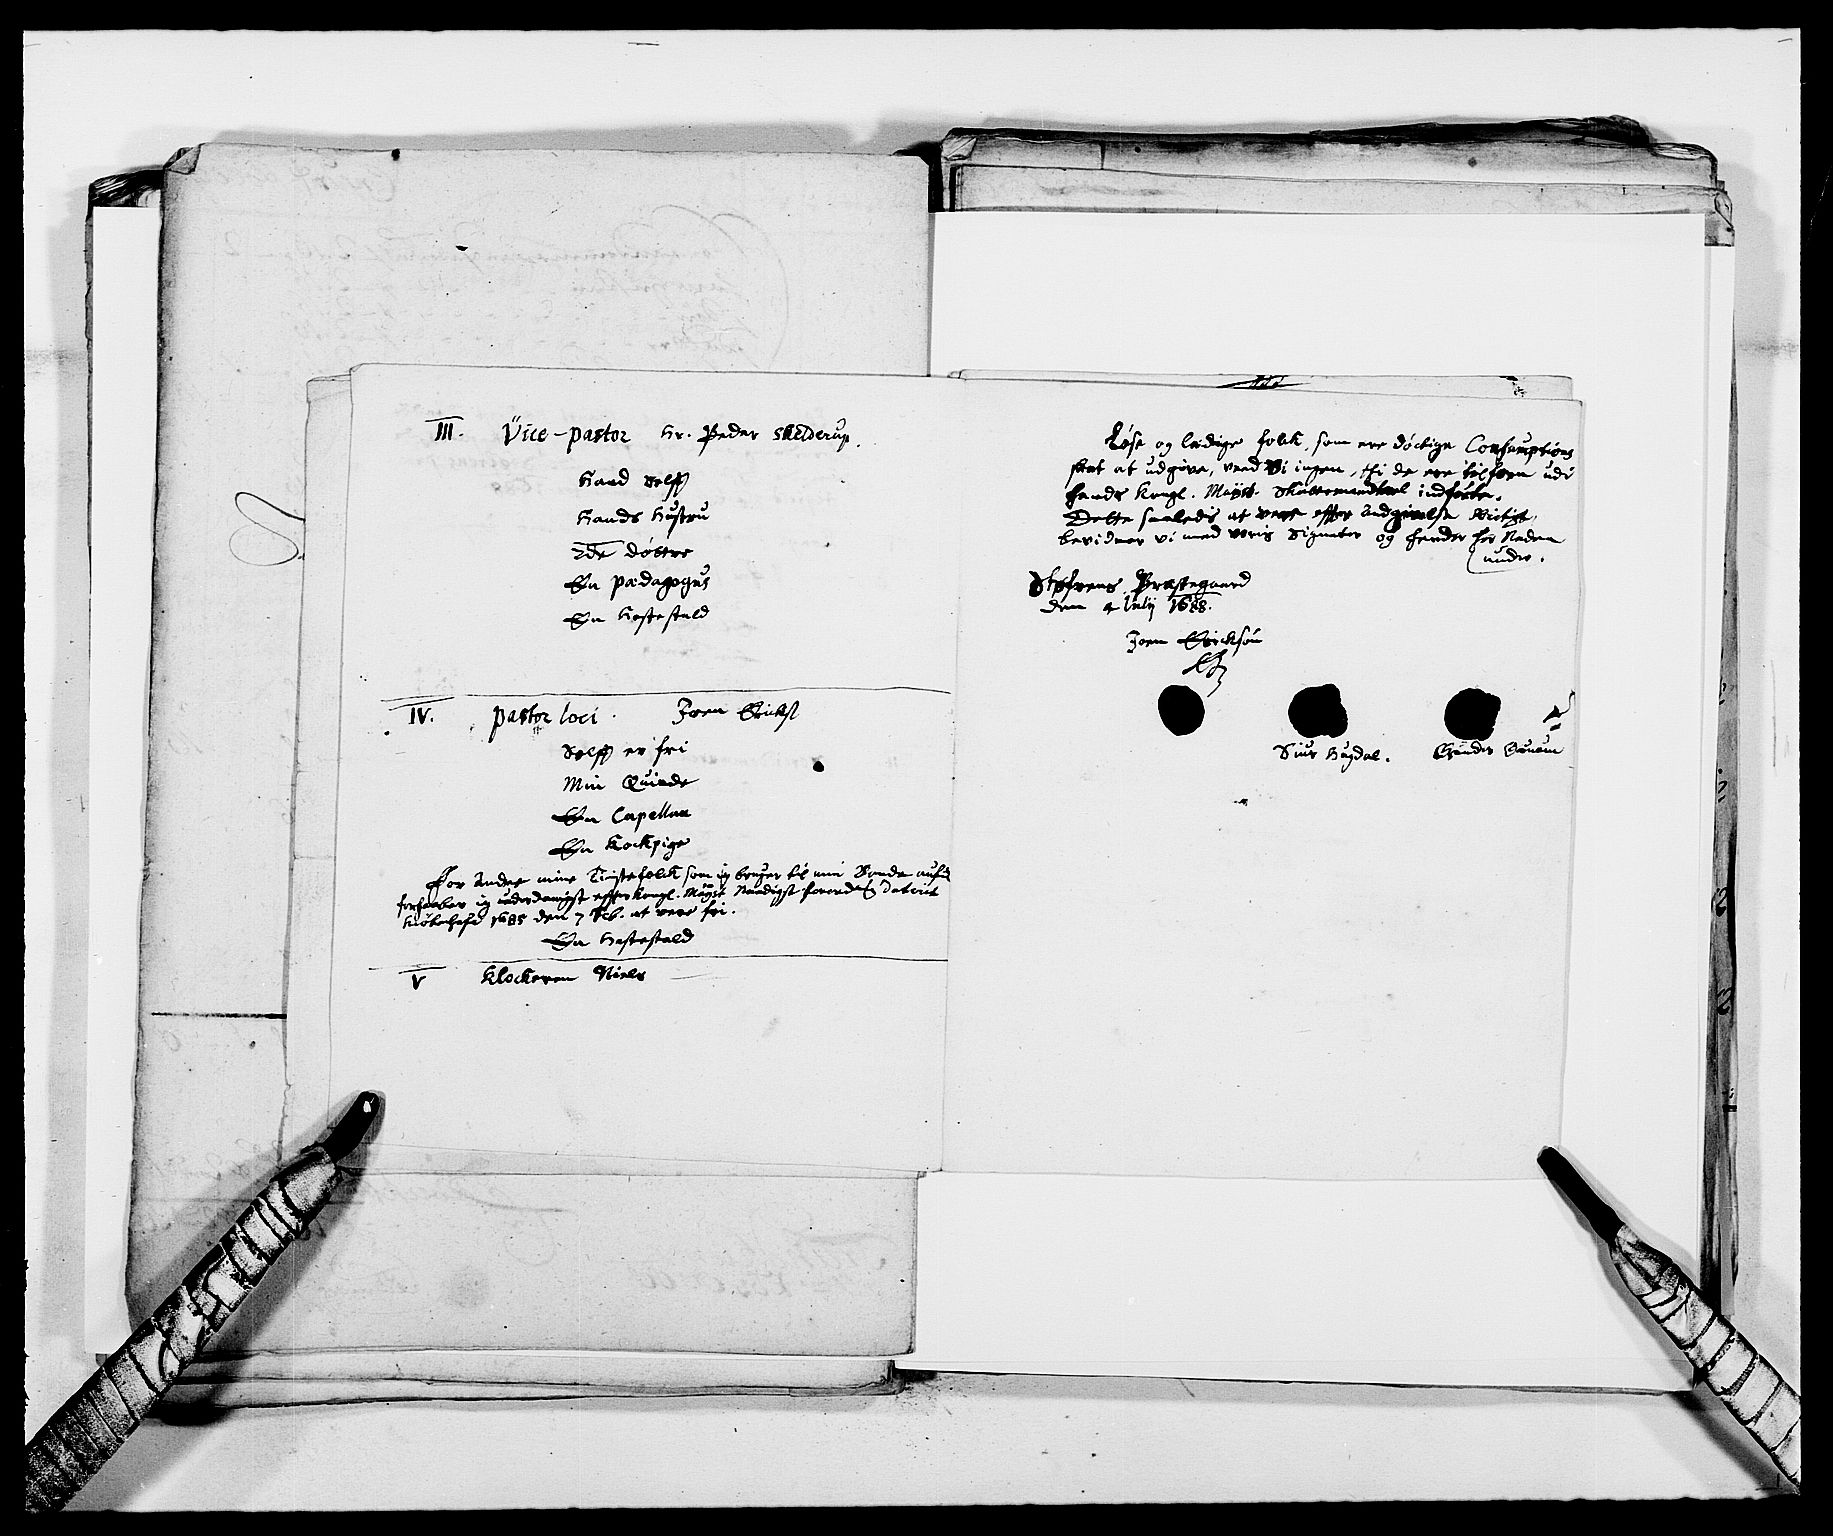 III. Vice-pastor Hr. Peder Skelderup.
Hand Selff
Hands Hustru
2de døttre
En Pædagogus
En Hestestald
IV. pastor loci. Joen Ericks
Selff er fri
Min Quinde
En Capellan
En Kockpige
For Andre mine Tienistefolck som ieg bruger til min Bonde
forhaaber ieg underdanigst effter Kongl. Mayst. Naadigst forordning daterit
Kiøbenhafn 1685 den 7 Feb. at vere fri.
En Hestestald
V Klockeren Niels
Løse og ledige folck, som ere döctige Consumptions
skat at udgive, veed Vi ingen, thi de ere tilforn udi
hands Kongl. Mayst. Skattemandtal indførte.
Dette saaledis at vere effter Andgivelse Rictigt,
bevidner vi med voris Signeter og hender her Neden
under.
Præstegaard
den 4 July 1688.
Joen Erickson
Siur Hugdal.